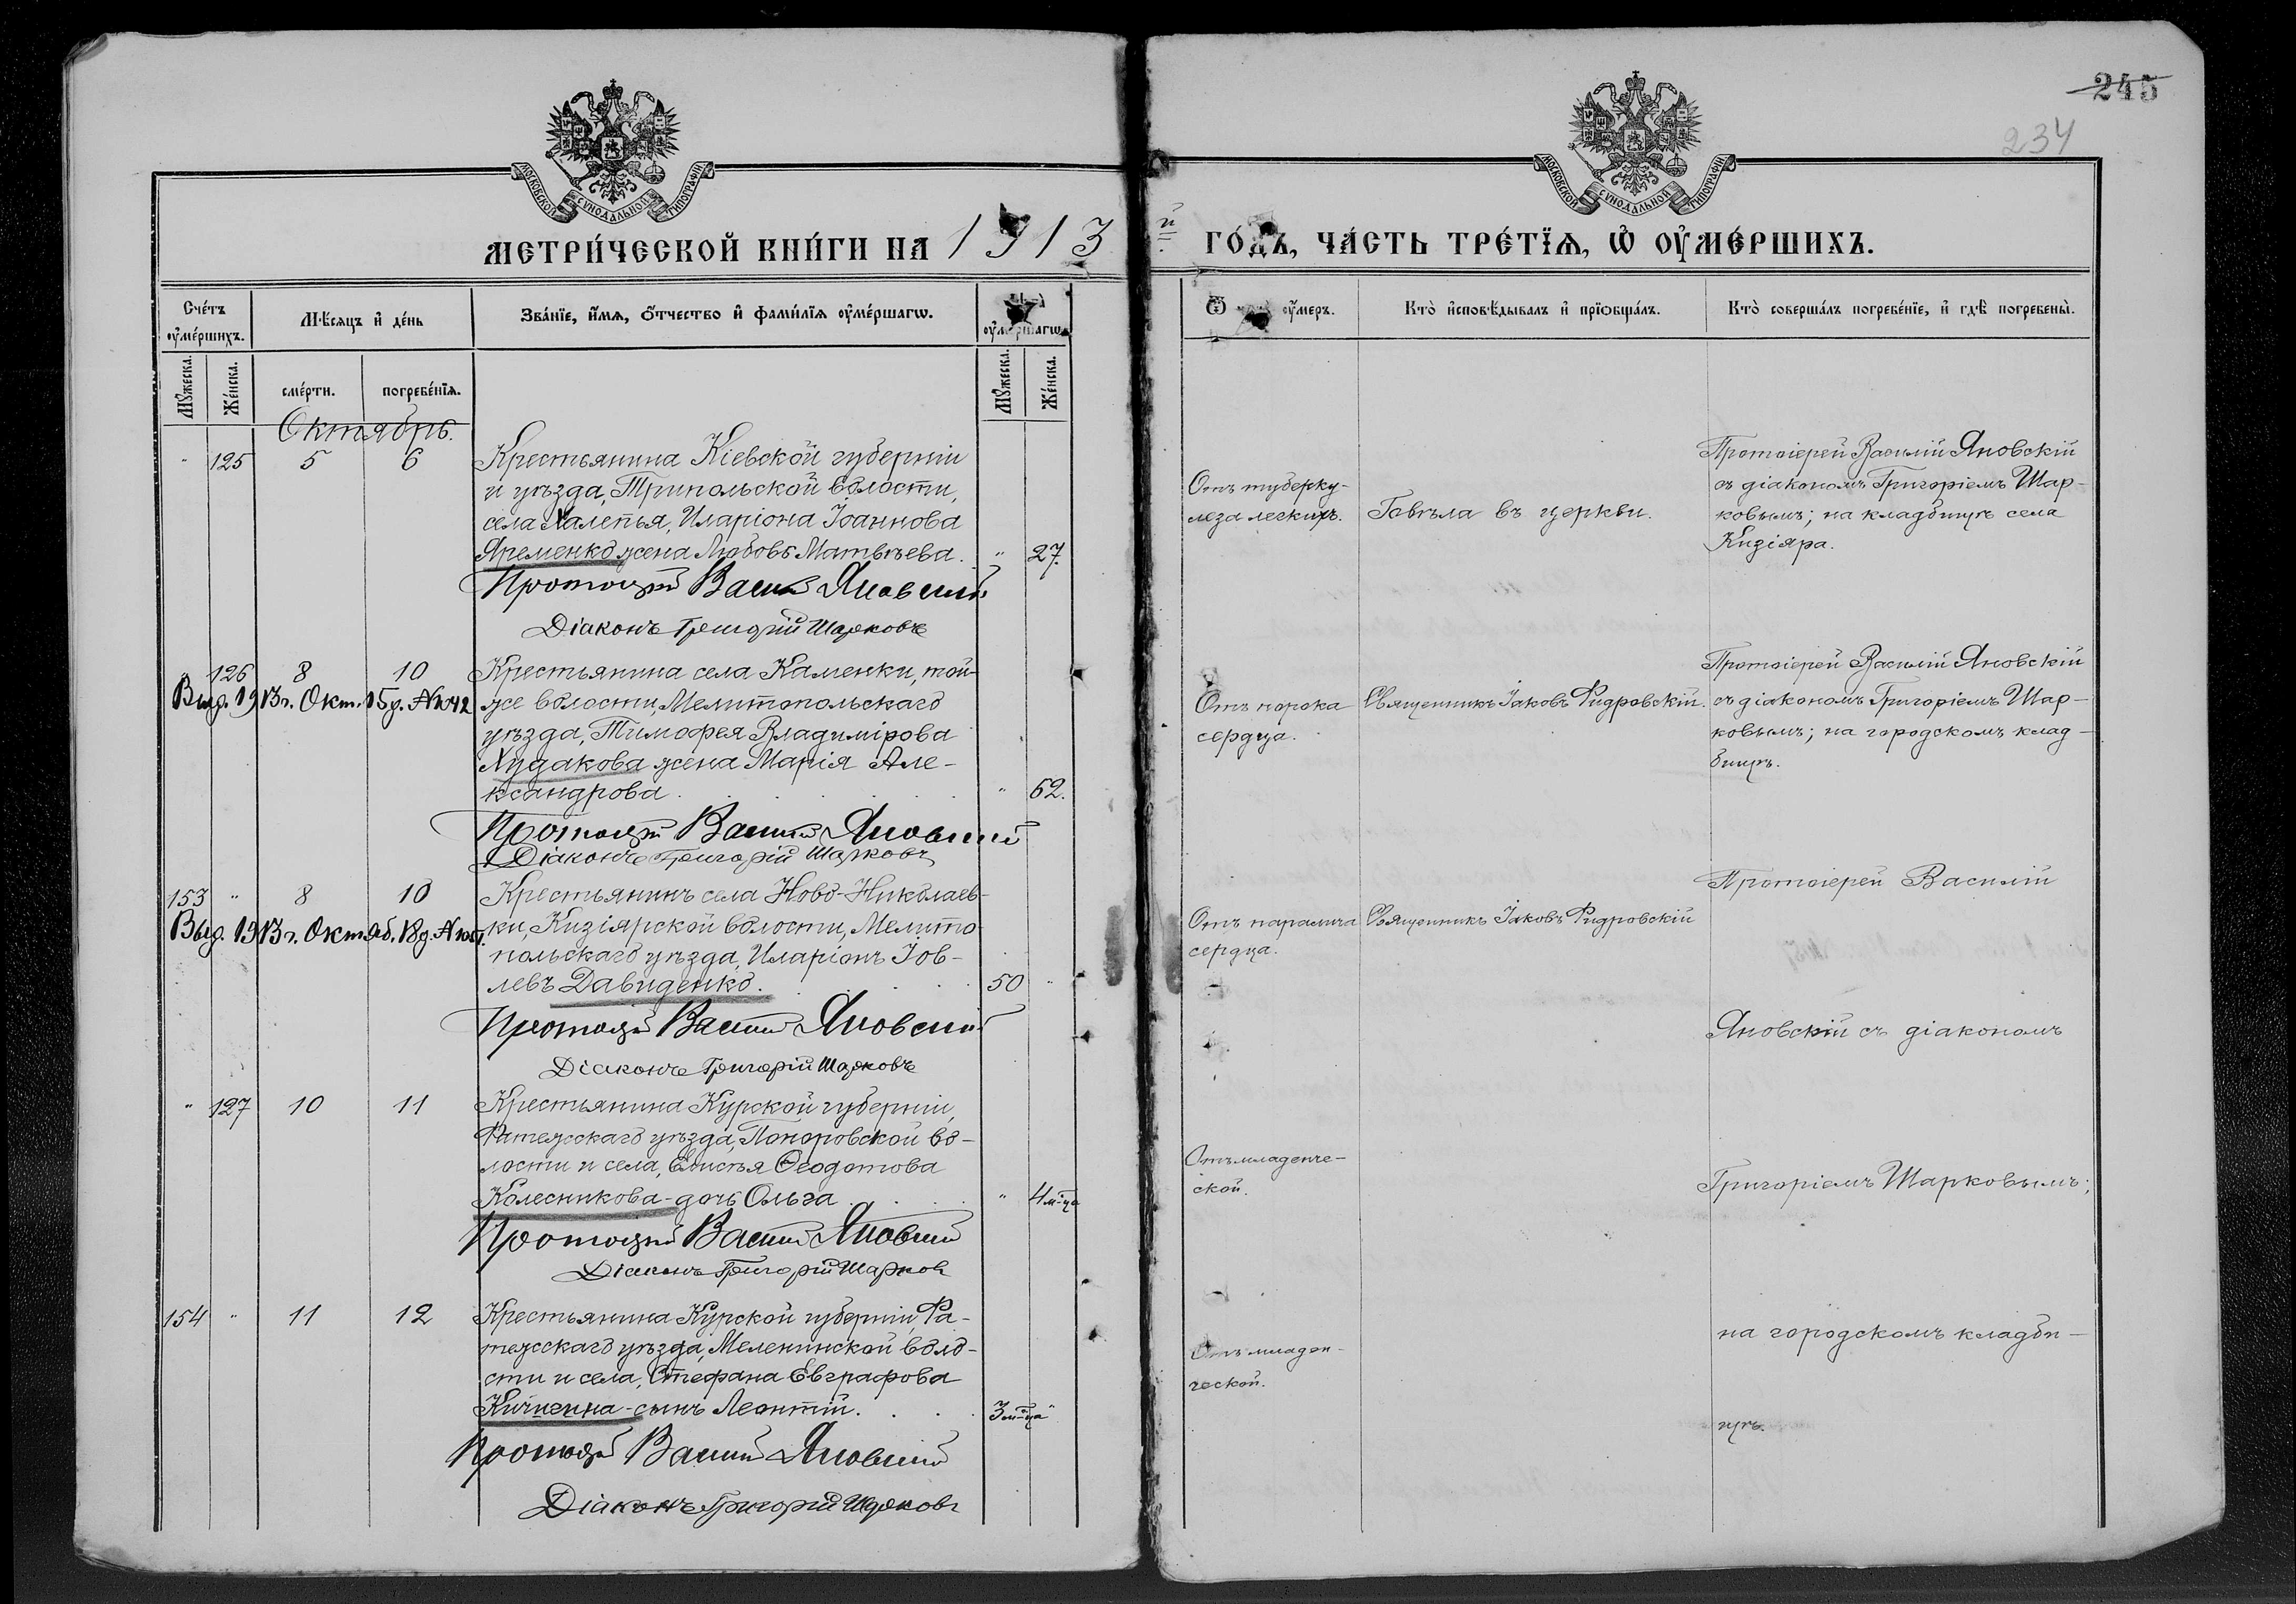 245
234
МОСКОВСКОЙ СѴНОДАЛЬНОЙ ТИПОГРАФІИ
МОСКОВСКОЙ СѴНОДАЛЬНОЙ ТИПОГРАФІИ
МЕТРИ́ЧЕСКОЙ КНИ́ГИ НА 1913 й ГО́ДЪ, ЧА́СТЬ ТРЕ́ТЇѦ, Ѽ ОУ҆МЕ́РШИХЪ.
Сче́тъ оу҆ме́ршихъ.
Мѣ́сяцъ и҆ де́нь
Зва́нїе, и҆́мѧ, ѻ҆́тчество и҆ фами́лїѧ оу҆ме́ршагѡ.
оу҆ме́ршагѡ
Ѿ оу҆́меръ.
Кто̀ и҆сповѣ́дывалъ и҆ прїѻбща́лъ.
Кто̀ соверша́лъ погребе́нїе, и҆ гдѣ̀ погребены̀.
Мꙋ́жеска. Же́нска. сме́рти. погребе́нїѧ. Мꙋ́жеска. Же́нска.
Октябрь.
" 125 5 6 Крестьянина Кіевской губерніи
и уѣзда, Трипольской волости,
села Халепья, Иларіона Іоаннова
Яременко жена Любовь Матвѣева. " 27.
Протоіерей Василій Яновскій
Діаконъ Григорій Шарковъ
Отъ туберку-
леза легкихъ.
Говѣла въ церкви.
Протоіерей Василій Яновскій
съ діакономъ Григоріемъ Шар-
ковымъ; на кладбищѣ села
Кизіяра.
126 8 10 Крестьянина села Каменки, той-
Выд. 1913 г. Окт. 15 д. № 1042 же волости, Мелитопольскаго
уѣзда, Тимофея Владимірова
Худакова жена Марія Але-
ксандрова . " 62.
Протоіерей Василій Яновскій
Діаконъ Григорій Шарковъ
Отъ порока
сердца.
Священникъ Іаковъ Фидровскій.
Протоіерей Василій Яновскій
съ діакономъ Григоріемъ Шар-
ковымъ; на городскомъ клад-
бищѣ.
153 " 8 10 Крестьянинъ села Ново-Николаев-
Выд. 1913 г. Октяб. 18 д. ки, Кизіярской волости, Мелито-
польскаго уѣзда, Иларіонъ Іов-
левъ Давиденко. 50 "
Протоіерей Василій Яновскій
Діаконъ Григорій Шарковъ
Отъ паралича
сердца.
Священникъ Іаковъ Фидровскій
Протоіерей Василій
Яновскій съ діакономъ
" 127 10 11 Крестьянина Курской губерніи,
Фатежскаго уѣзда, Поныровской во-
лости и села, Елисѣя Ѳеодотова
Колесникова - дочь Ольга . " 4 м-ца
Протоіерей Василій Яновскій
Діаконъ Григорій Шарковъ
Отъ младенче-
ской.
Григоріемъ Шарковымъ;
154 " 11 12 Крестьянина Курской губерніи, Фа-
тежскаго уѣзда, Меленинской воло-
сти и села, Стефана Евграфова
Кичигина - сынъ Леонтій. 3 м-ца "
Протоіерей Василій Яновскій
Діаконъ Григорій Шарковъ
Отъ младен-
ческой.
на городскомъ кладби-
щѣ.